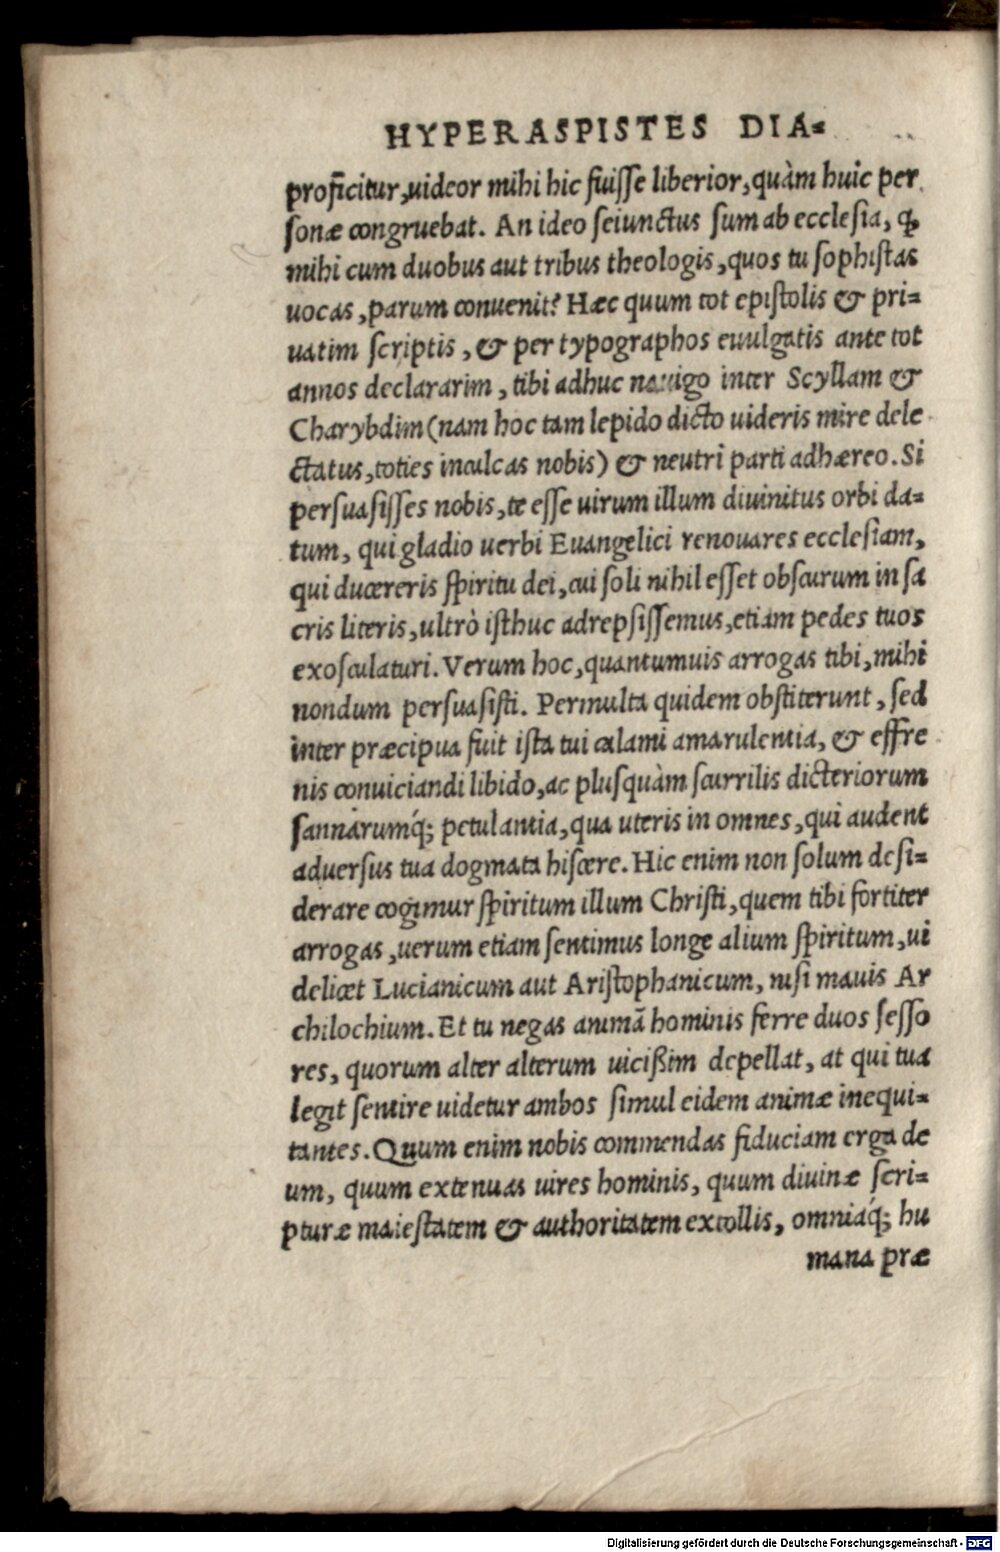 HYPERASPISTES DIA⸗
proficitur, uideor mihi hic fuisse liberior, quàm huic per
sonæ congruebat. An ideo seiunctus sum ab ecclesia, ꝙ
mihi cum duobus aut tribus theologis, quos tu sophistas
uocas, parum conuenit? Hæc quum tot epistolis & pri⸗
uatim scriptis, & per typographos euulgatis ante tot
annos declararim, tibi adhuc nauigo inter Scyllam &
Charybdim (nam hoc tam lepido dicto uideris mire dele
ctatus, toties inculcas nobis) & neutri parti adhæreo. Si
persuasisses nobis, te esse uirum illum diuinitus orbi da⸗
tum, qui gladio uerbi Euangelici renouares ecclesiam,
qui ducereris spiritu dei, cui soli nihil esset obscurum in sa
cris literis, ultrò isthuc adrepsissemus, etiam pedes tuos
exosculaturi. Verum hoc, quantumuis arrogas tibi, mihi
nondum persuasisti. Permulta quidem obstiterunt, sed
inter præcipua fuit ista tui calami amarulentia, & effre
nis conuiciandi libido, ac plusquàm scurrilis dicteriorum
sannarumq́; petulantia, qua uteris in omnes, qui audent
aduersus tua dogmata hiscere. Hic enim non solum desi⸗
derare cogimur spiritum illum Christi, quem tibi fortiter
arrogas, uerum etiam sentimus longe alium spiritum, ui
delicet Lucianicum aut Aristophanicum, nisi mauis Ar
chilochium. Et tu negas animã hominis ferre duos sesso
res, quorum alter alterum uicißim depellat, at qui tua
legit sentire uidetur ambos simul eidem animæ inequi⸗
tantes. Quum enim nobis commendas fiduciam erga de
um, quum extenuas uires hominis, quum diuinæ scri⸗
pturæ maiestatem & authoritatem extollis, omniaq́; hu
mana præ
Digitalisierung gefördert durch die Deutsche Forschungsgemeinschaft - DFG